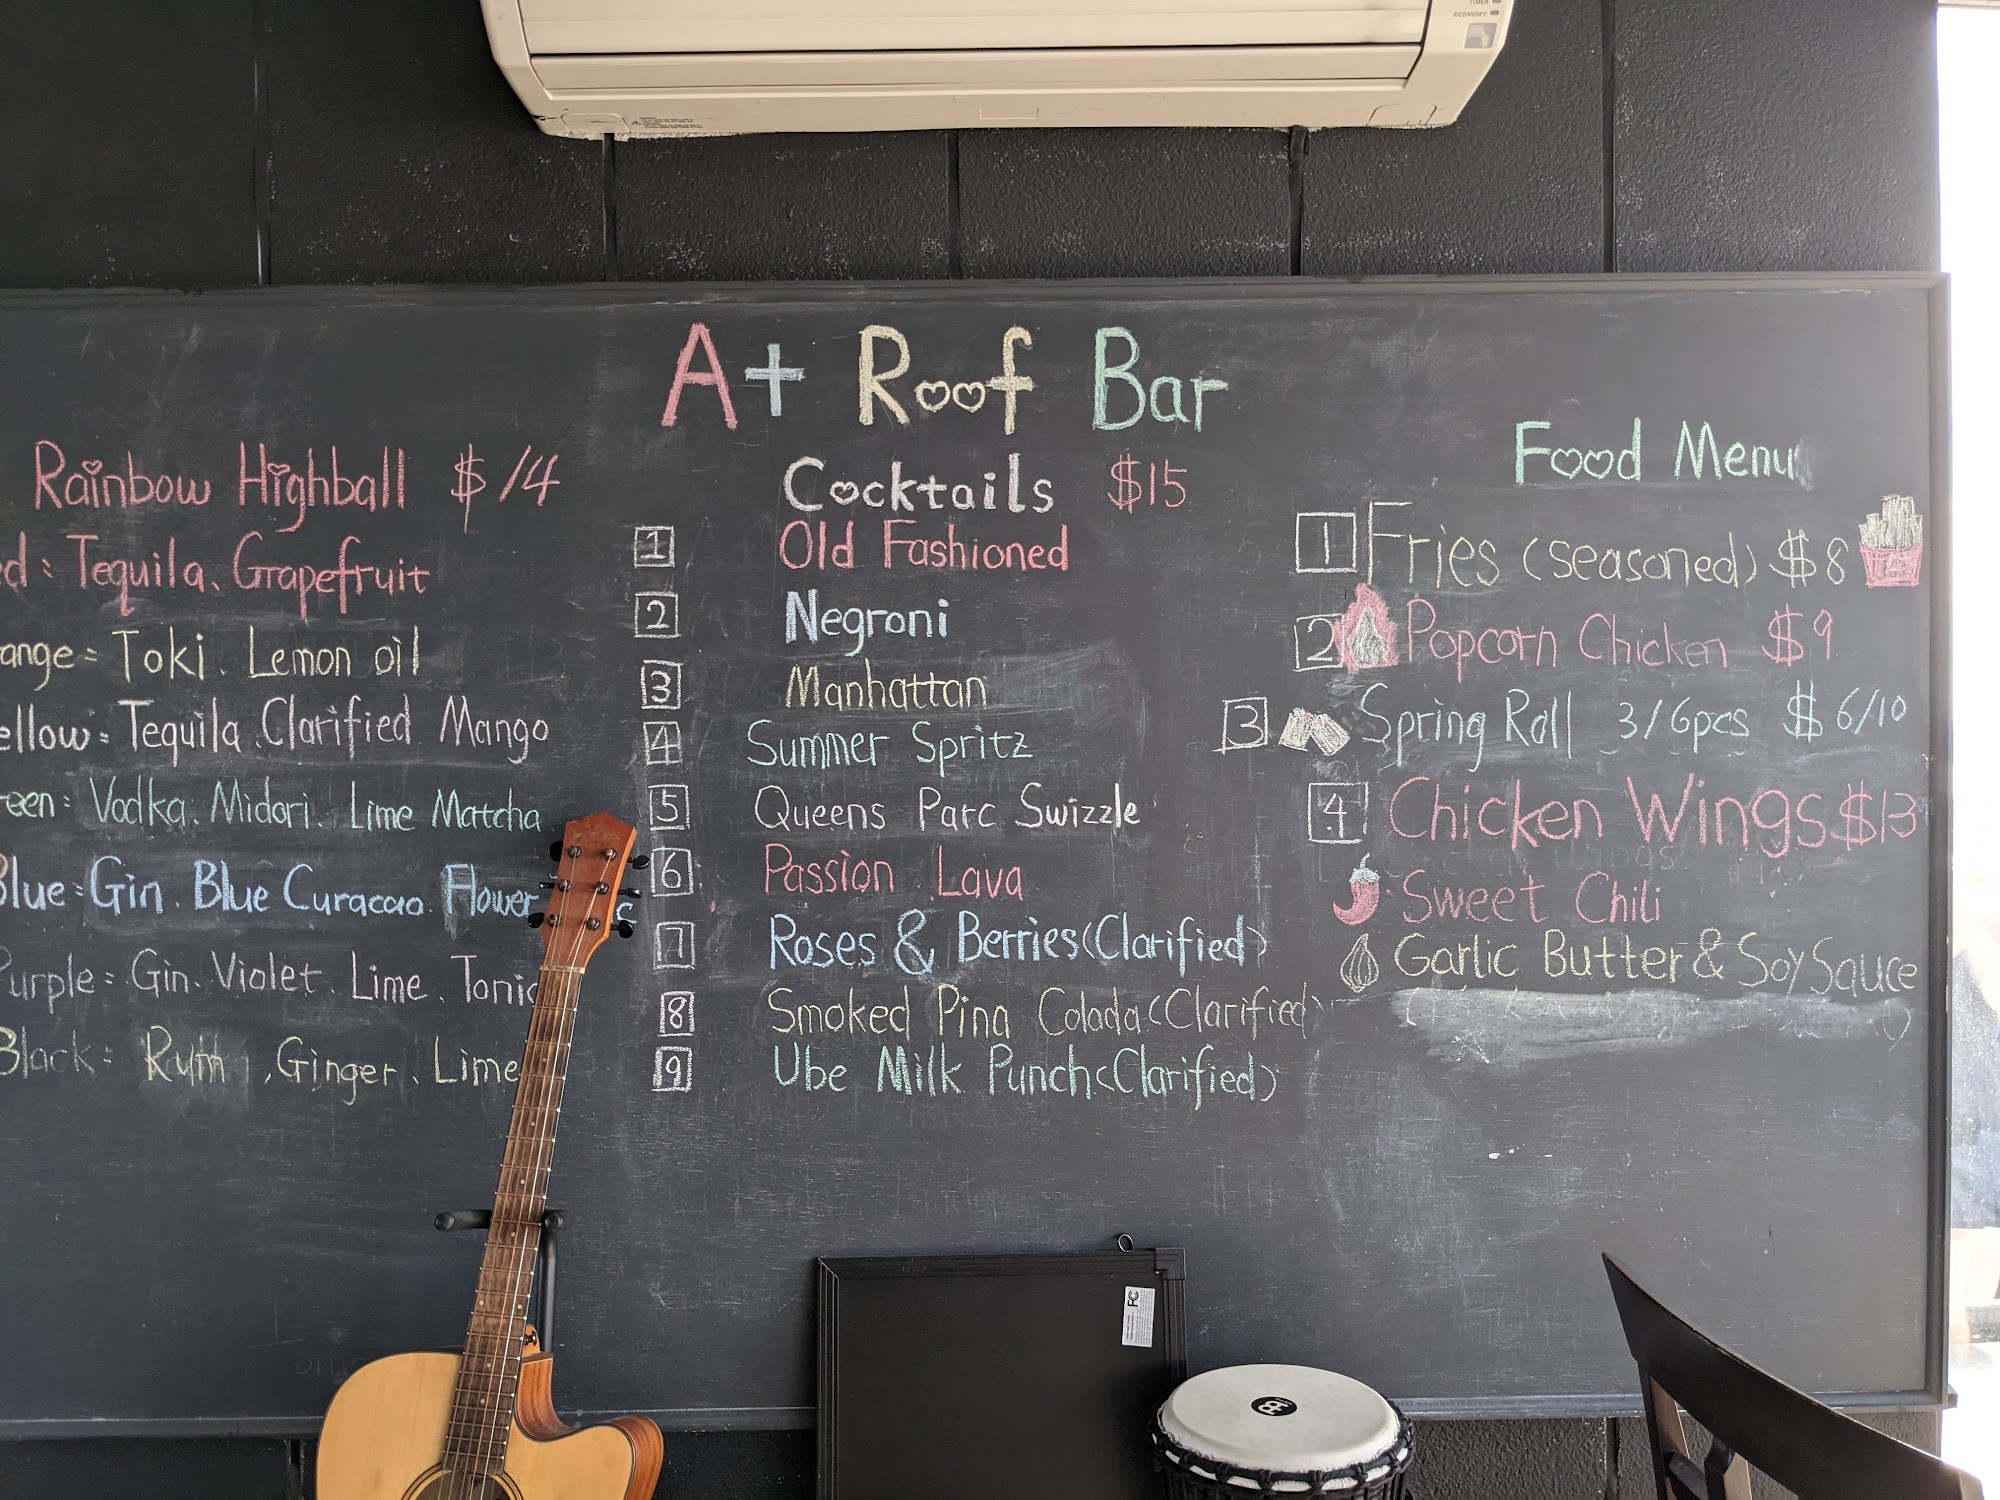 TIMER
ECONOMY
A+ Roof Bar
Rainbow Highball $14
ed: Tequila. Grapefruit
ange: Toki. Lemon oil
ellow: Tequila. Clarified Mango
een: Vodka. Midori. Lime Matcha
Blue: Gin. Blue Curacao. Flower
Purple: Gin. Violet. Lime. Tonic
Black: Rum, Ginger. Lime
Cocktails $15
1 Old Fashioned
2 Negroni
3 Manhattan
4 Summer Spritz
5 Queens Parc Swizzle
6 Passion Lava
7 Roses & Berries (Clarified)
8 Smoked Pina Colada (Clarified)
9 Ube Milk Punch (Clarified)
Food Menu
1 Fries (seasoned) $8
2 Popcorn Chicken $9
3 Spring Roll 3/6pcs $6/10
4 Chicken Wings $13
Sweet Chili
Garlic Butter & Soy Sauce
FC